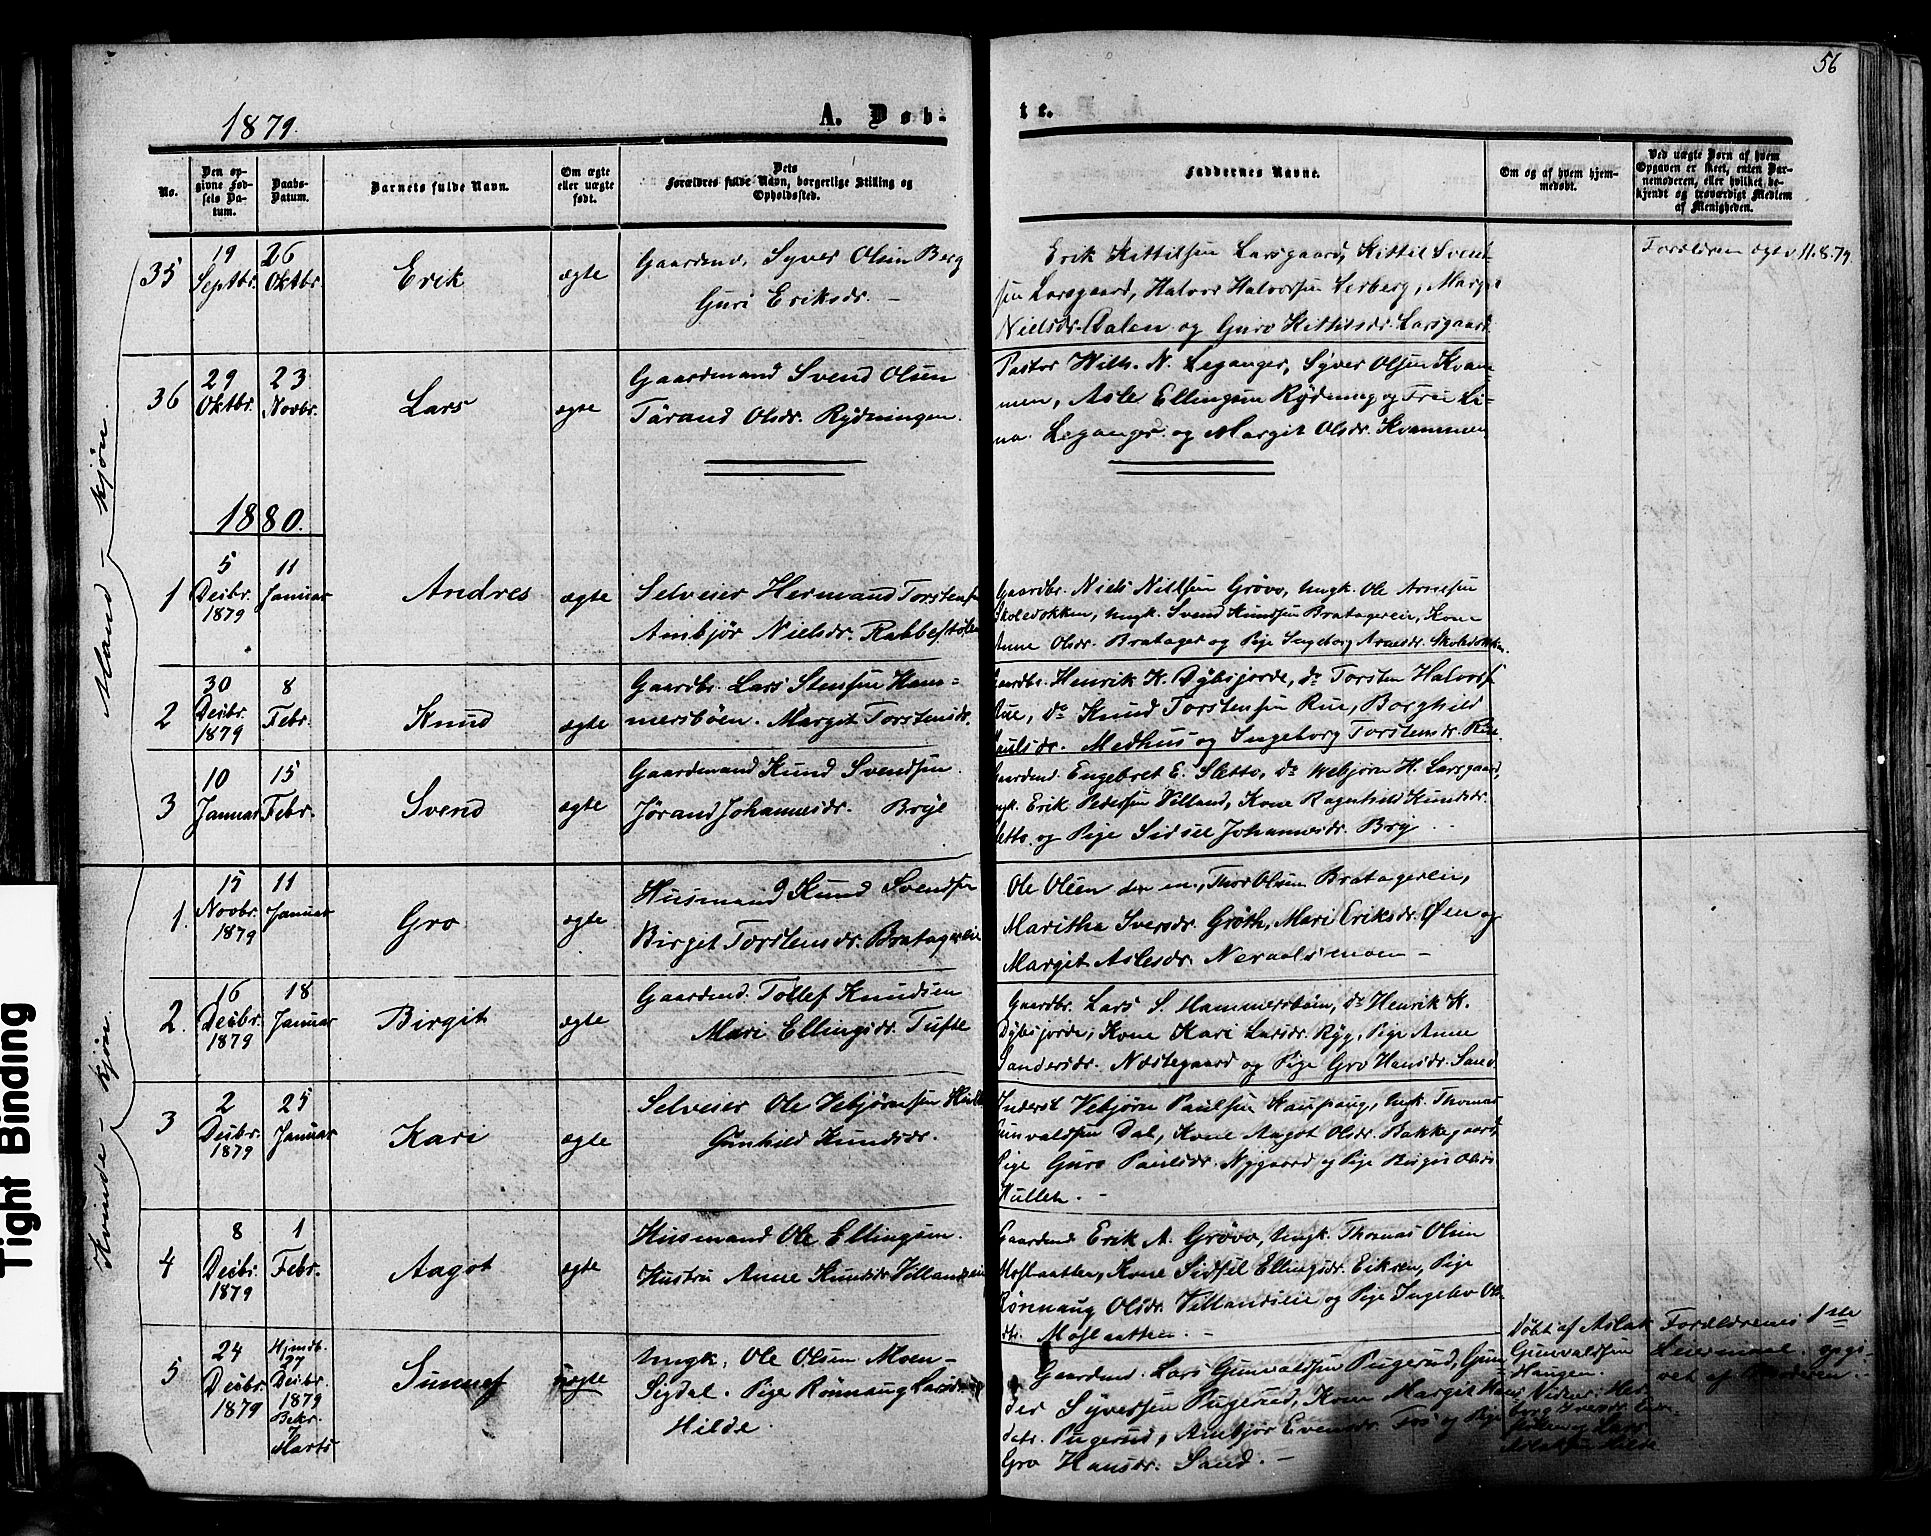 56
1879.
A. Døb-
te.
No.
Den op-
givne Fød-
sels Da-
tum.
Daabs-
Datum.
Barnets fulde Navn.
Om ægte
eller uægte
født.
Dets
Forældres fulde Navn, borgerlige Stilling og
Opholdssted.
Faddernes Navne.
Om og af hvem hjem-
medøbt.
Ved uægte Børn af hvem
Opgaven er skeet, enten Bar-
nemoderen, eller hvilket be-
kjendt og troværdigt Medlem
af Menigheden.
Mand-kjøn.
35
19
Septbr.
26
Oktbr.
Erik
ægte
Gaardmd. Syver Olsen Berg
Guri Eriksdr. -
Erik Kittilsen Larsgaard, Kittil Svend-
sen Larsgaard, Halvor Halvorsen Lerberg, Margit
Nielsdr. Aalen og Guro Kittilsdr. Larsgaard
Forældren egtev. 11.8.79.
36
29
Oktbr.
23
Novbr.
Lars
ægte
Gaardmand Svend Olsen
Tårand Olsdr. Rydningen.
Pastor Wilh. N. Leganger, Syver Olsen Kvam-
men, Asle Ellingsen Rydning og Frei Li-
na Leganger og Margit Olsdr. Kvammen
1880.
1
5
Desbr.
1879
11
Januar
Andres
ægte
Selveier Hermand Torstensen
Ambjør Nielsdr. Rabbestølen
Gaardbr. Niels Nielsen Grøvo, Ungk. Ole Arnesen
Skoledokken, Ungk. Svend Knudsen Bratagereie, Kone
Anne Olsdr. Bratager og Pige Ingeborg Arnesdr. Skoledokken.
2
30
Desbr.
1879
8
Febr.
Knud
ægte
Gaardbr. Lars Stensen Ham-
mersbøen. Margit Torstensdr.
Gaardbr. Henrik K. Dybsjorde, do Torsten Halvors.
Rue, do Knud Torstensen Rue, Borghild
Paulsdr. Medhus og Ingeborg Torstensdr. Rue
3
10
Januar
15
Febr.
Svend
ægte
Gaardmand Knud Svendsen
Jørand Johannesdr. Brye
Gaardmd. Engebret E. Sletto, do Webjørn H. Larsgaard,
Ungk. Erik Pedersen Villand, Kone Ragenhild Knudsdr.
Sletto og Pige Sidsel Johannesdr. Bry
Kvinde-kjøn.
1.
15
Novbr.
1879
11
Januar
Gro
ægte
Husmand Knud Svendsen
Birgit Torstensdr. Bratagereie
Ole Olsen den en., Thor Olsen Bratagereie,
Maritha Sversdr. Grøth, Mari Eriksdr. Øen og
Margit Aslesdr. Neraalsmoen -
2.
16
Desbr.
1879
18
Januar
Birgit
ægte
Gaardmd. Tollef Knudsen
Mari Ellingsdr. Tufte
Gaardbr. Lars S. Hammersbøen, do Henrik K.
Dybsjorde, Kone Kari Larsdr. Ryg, Pige Anne
Sandersdr. Næstegaard og Pige Gro Hansdr. Sand
3
2
Desbr.
1879
25
Januar
Kari
ægte
Selveier Ole Vebjørnsen
Gunhild Knudsdr.
Inderst Vebjørn Paulsen Haugaaug, Ungk. Thomas
Gunvaldsen Dal, Kone Aagot Olsdr. Bakkegaard,
Pige Guro Paulsdr. Nygaard og Pige Birgit Olsdr.
Hullek. -
4
8
Desbr.
1879
1
Febr.
Aagot
ægte
Husmand Ole Ellingsen.
Hustru Anne Knudsdr. Villandseie
Gaardmd Erik A. Grøvo, Ungk. Thomas Olsen
Moslaatten, Kone Sidsel Ellingsdr. Eiksen, Pige
Rønnaug Olsdr. Villandseie og Pige Ingebor Ols-
dtr. Moslaatten. -
5
24
Desbr.
1879
Hjmdb.
27
Desbr.
1879
Bekr.
7
Marts
Sunnef
uægte
Ungk. Ole Olsen Moen -
Sigdal. Pige Rønnaug Larsdr.
Hilde.
Gaardmd. Lars Gunvaldsen Pugerud, Gun-
der Syversen Pugerud, Kone Margit Hans-
datr. Pugerud, Ambjør Evensdr. Fos og Pige
Gro Hansdr. Sand. -
Døbt af Aslak
Gunvaldsen
Haugen.
Forældrenes 1ste
Leiermaal. opgi-
vet af Moderen.
Tight Binding